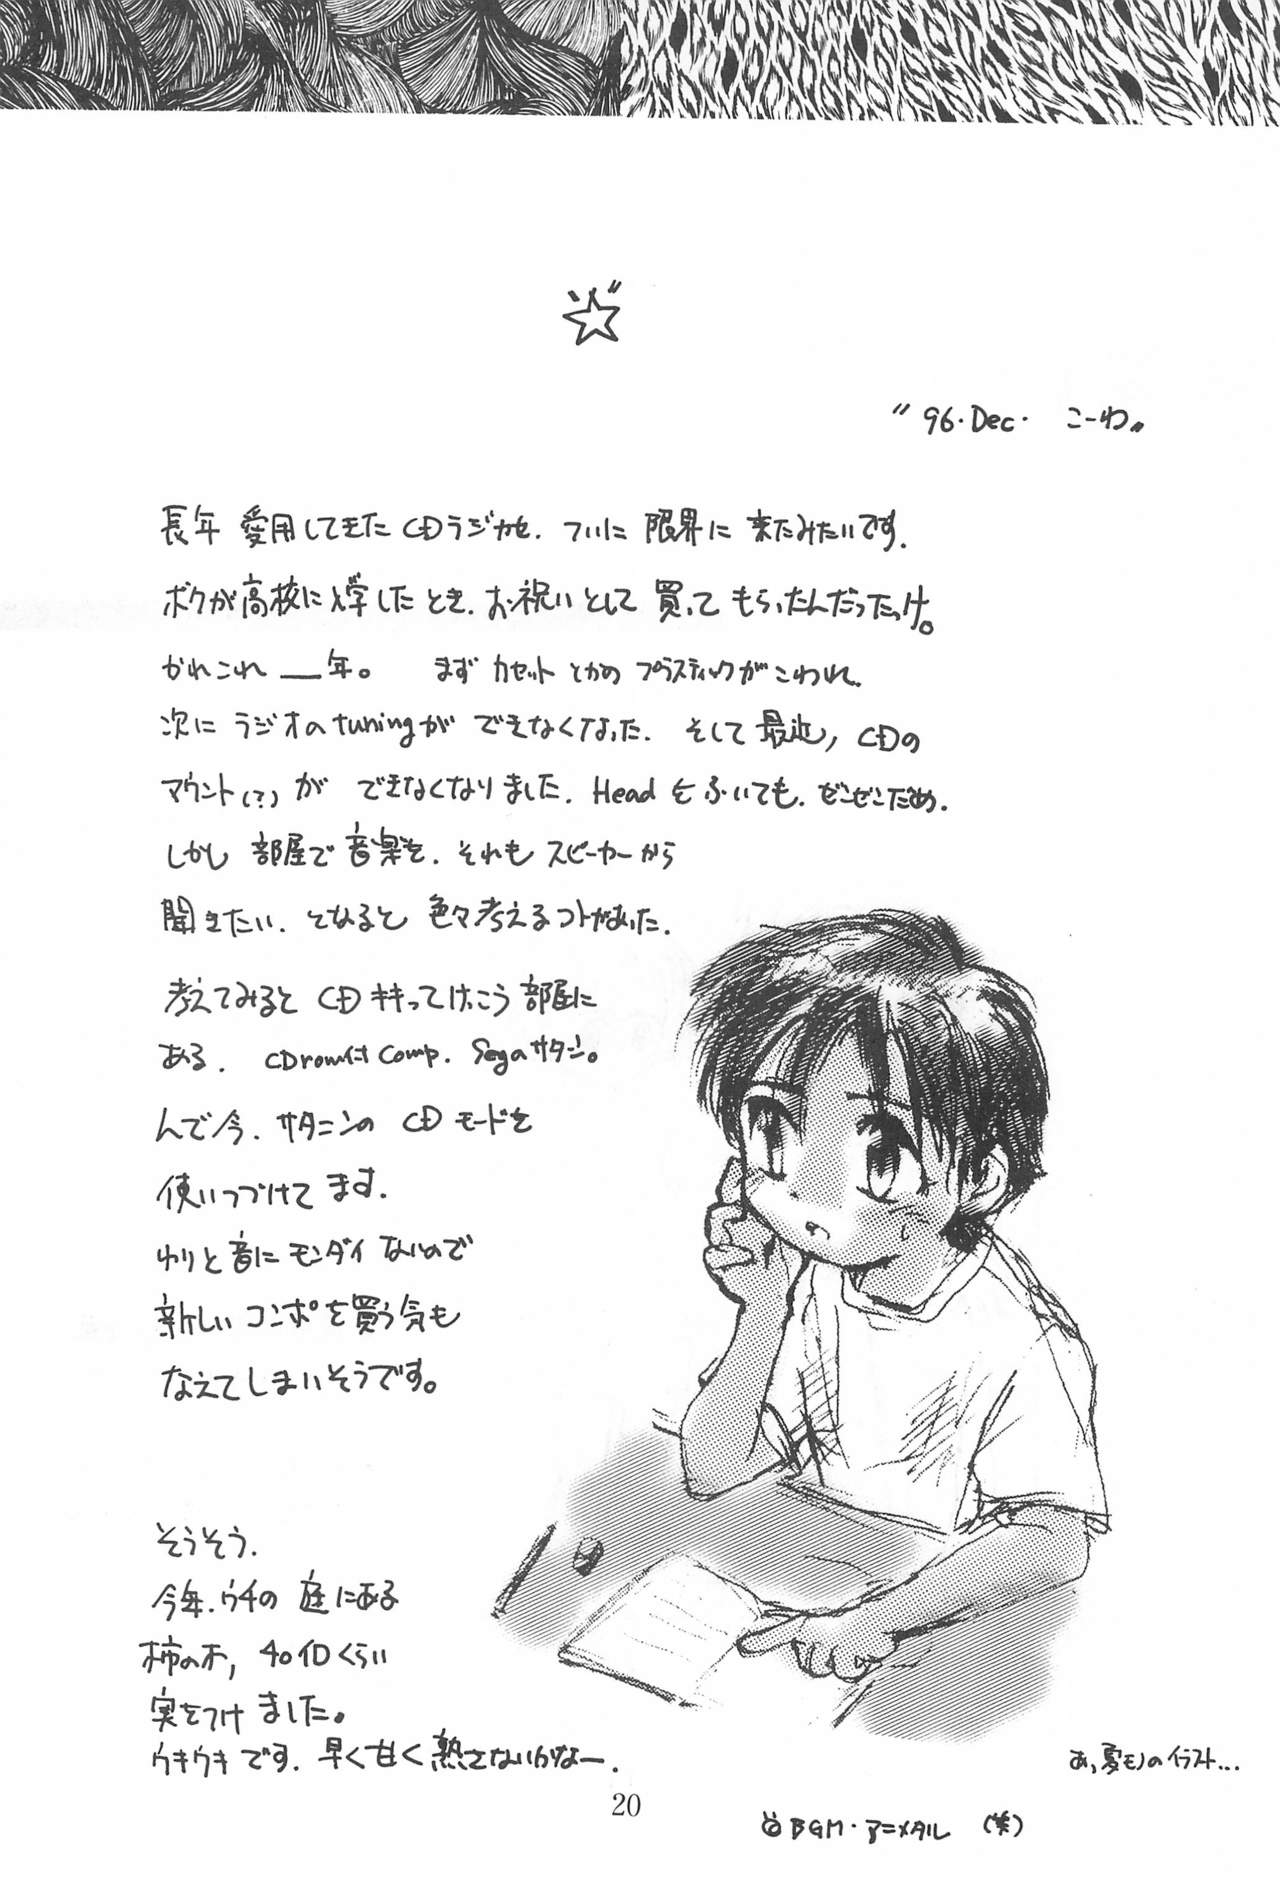 "96.Dec. こーわ"
長年 愛用してきた CDラジカセ. ついに 限界に 来たみたいです.
ボクが高校に入学したとき. お祝いとして 買って もらったんだったっけ。
かれこれ __年。 まず カセット とかの プラスティックがこわれ.
次に ラジオのtuningが できなくなった. そして 最近, CDの
マウント(?)が できなくなりました. Headをふいても. ぜんぜんだめ.
しかし 部屋で 音楽を. それも スピーカーから
聞きたい. となると 色々考えるコトがあった.
考えてみると CDキキってけっこう 部屋に
ある. CDrom付 Comp. Segaサタン。
んで今. サターンの CDモードを
使いつづけてます.
わりと音に モンダイ ないので
新しい コンポを買う気も
なえてしまいそうです。
そうそう.
今年. ウチの 庭にある
柿の木, 40個くらい
実をつけました。
ウキウキです. 早く甘く 熟さないかなー.
あ,夏モノのイラスト...
20
BGM・アニメタル (笑)